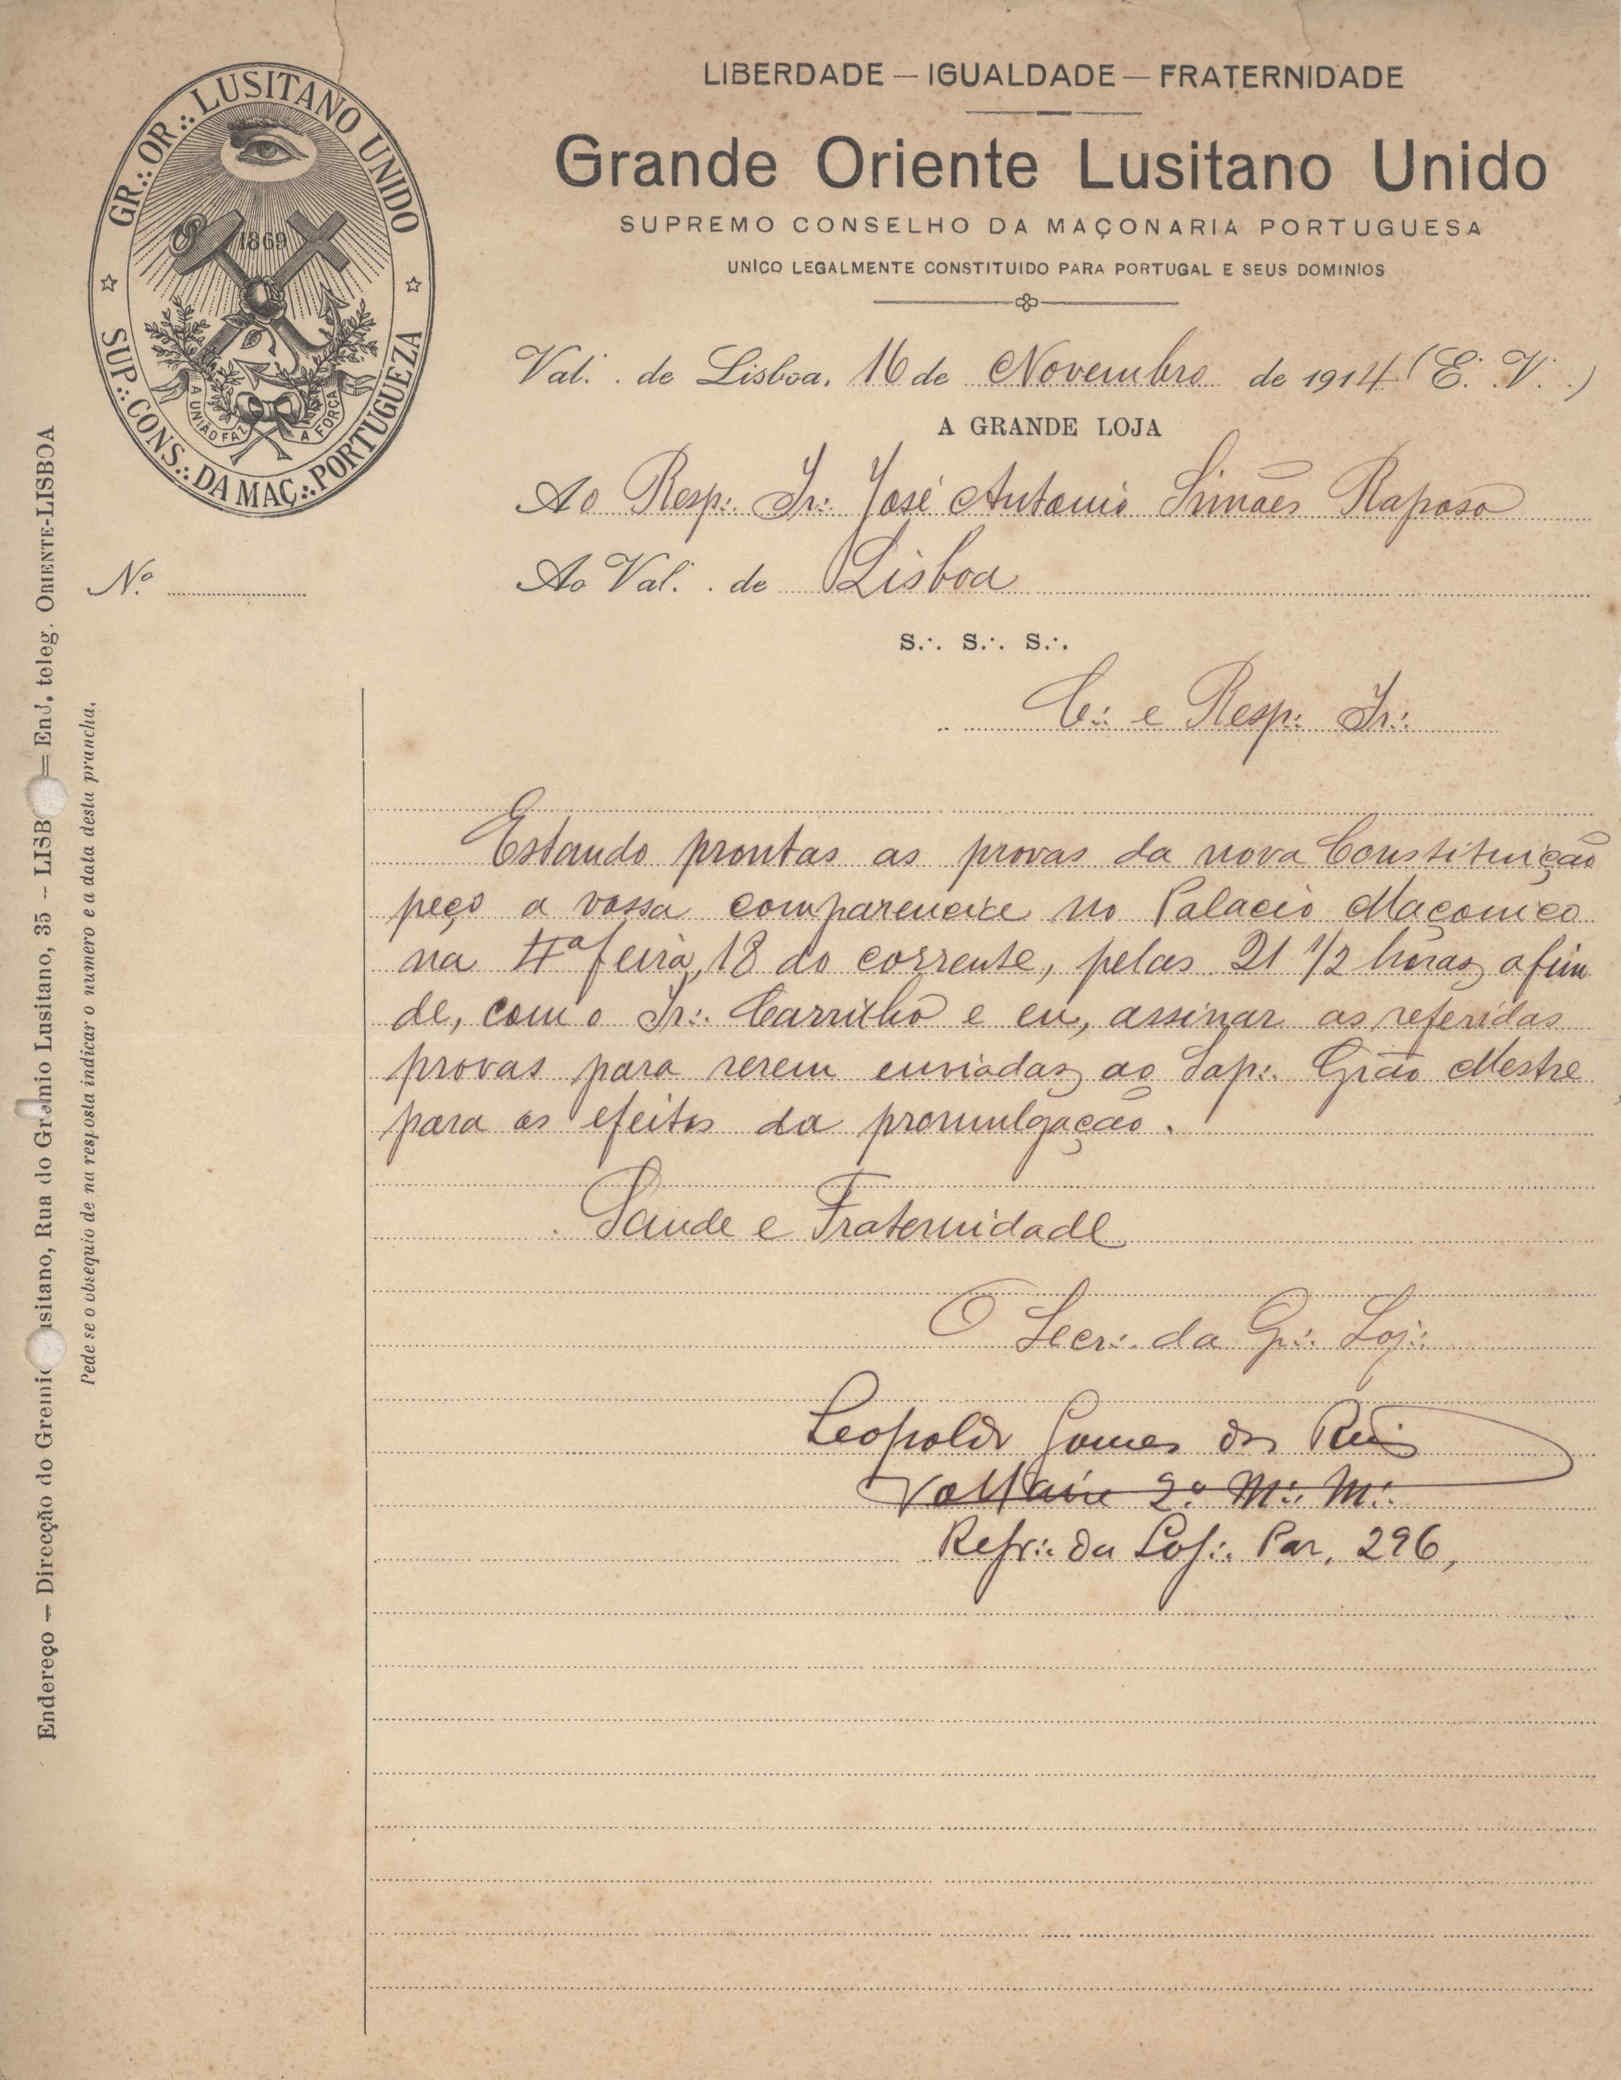 LIBERDADE — IGUALDADE — FRATERNIDADE
Grande Oriente Lusitano Unido
SUPREMO CONSELHO DA MAÇONARIA PORTUGUESA
UNICO LEGALMENTE CONSTITUIDO PARA PORTUGAL E SEUS DOMINIOS
GR∴ OR∴ LUSITANO UNIDO
SUP∴ CONS∴ DA MAÇ∴ PORTUGUEZA
1869
A UNIÃO FAZ A FORÇA
Val∴ de Lisboa, 16 de Novembro de 1914 (E∴ V∴)
A GRANDE LOJA
Ao Resp∴ Ir∴ José Antonio Simões Raposo
Nº
Ao Val∴ de Lisboa
S∴ S∴ S∴
C∴ e Resp∴ Ir∴
Estando prontas as provas da nova Constituição
peço a vossa comparencia no Palacio Maçonico
na 4ª feira, 18 do corrente, pelas 21 1/2 horas, afim
de, com o Ir∴ Carrilho e eu, assinar as referidas
provas para serem enviadas ao Sap∴ Grão Mestre
para os efeitos da promulgação.
Saude e Fraternidade
O Secr∴ da Gr∴ Loj∴
Leopoldo Gomes dos Reis
Voltaire 2º M∴ M∴
Repr∴ da Loj∴ Par. 296,
Endereço — Direcção do Gremio Lusitano, Rua do Gremio Lusitano, 35 — LISB = End. teleg. ORIENTE-LISBOA
Pede se o obsequio de na resposta indicar o numero e a data desta prancha.